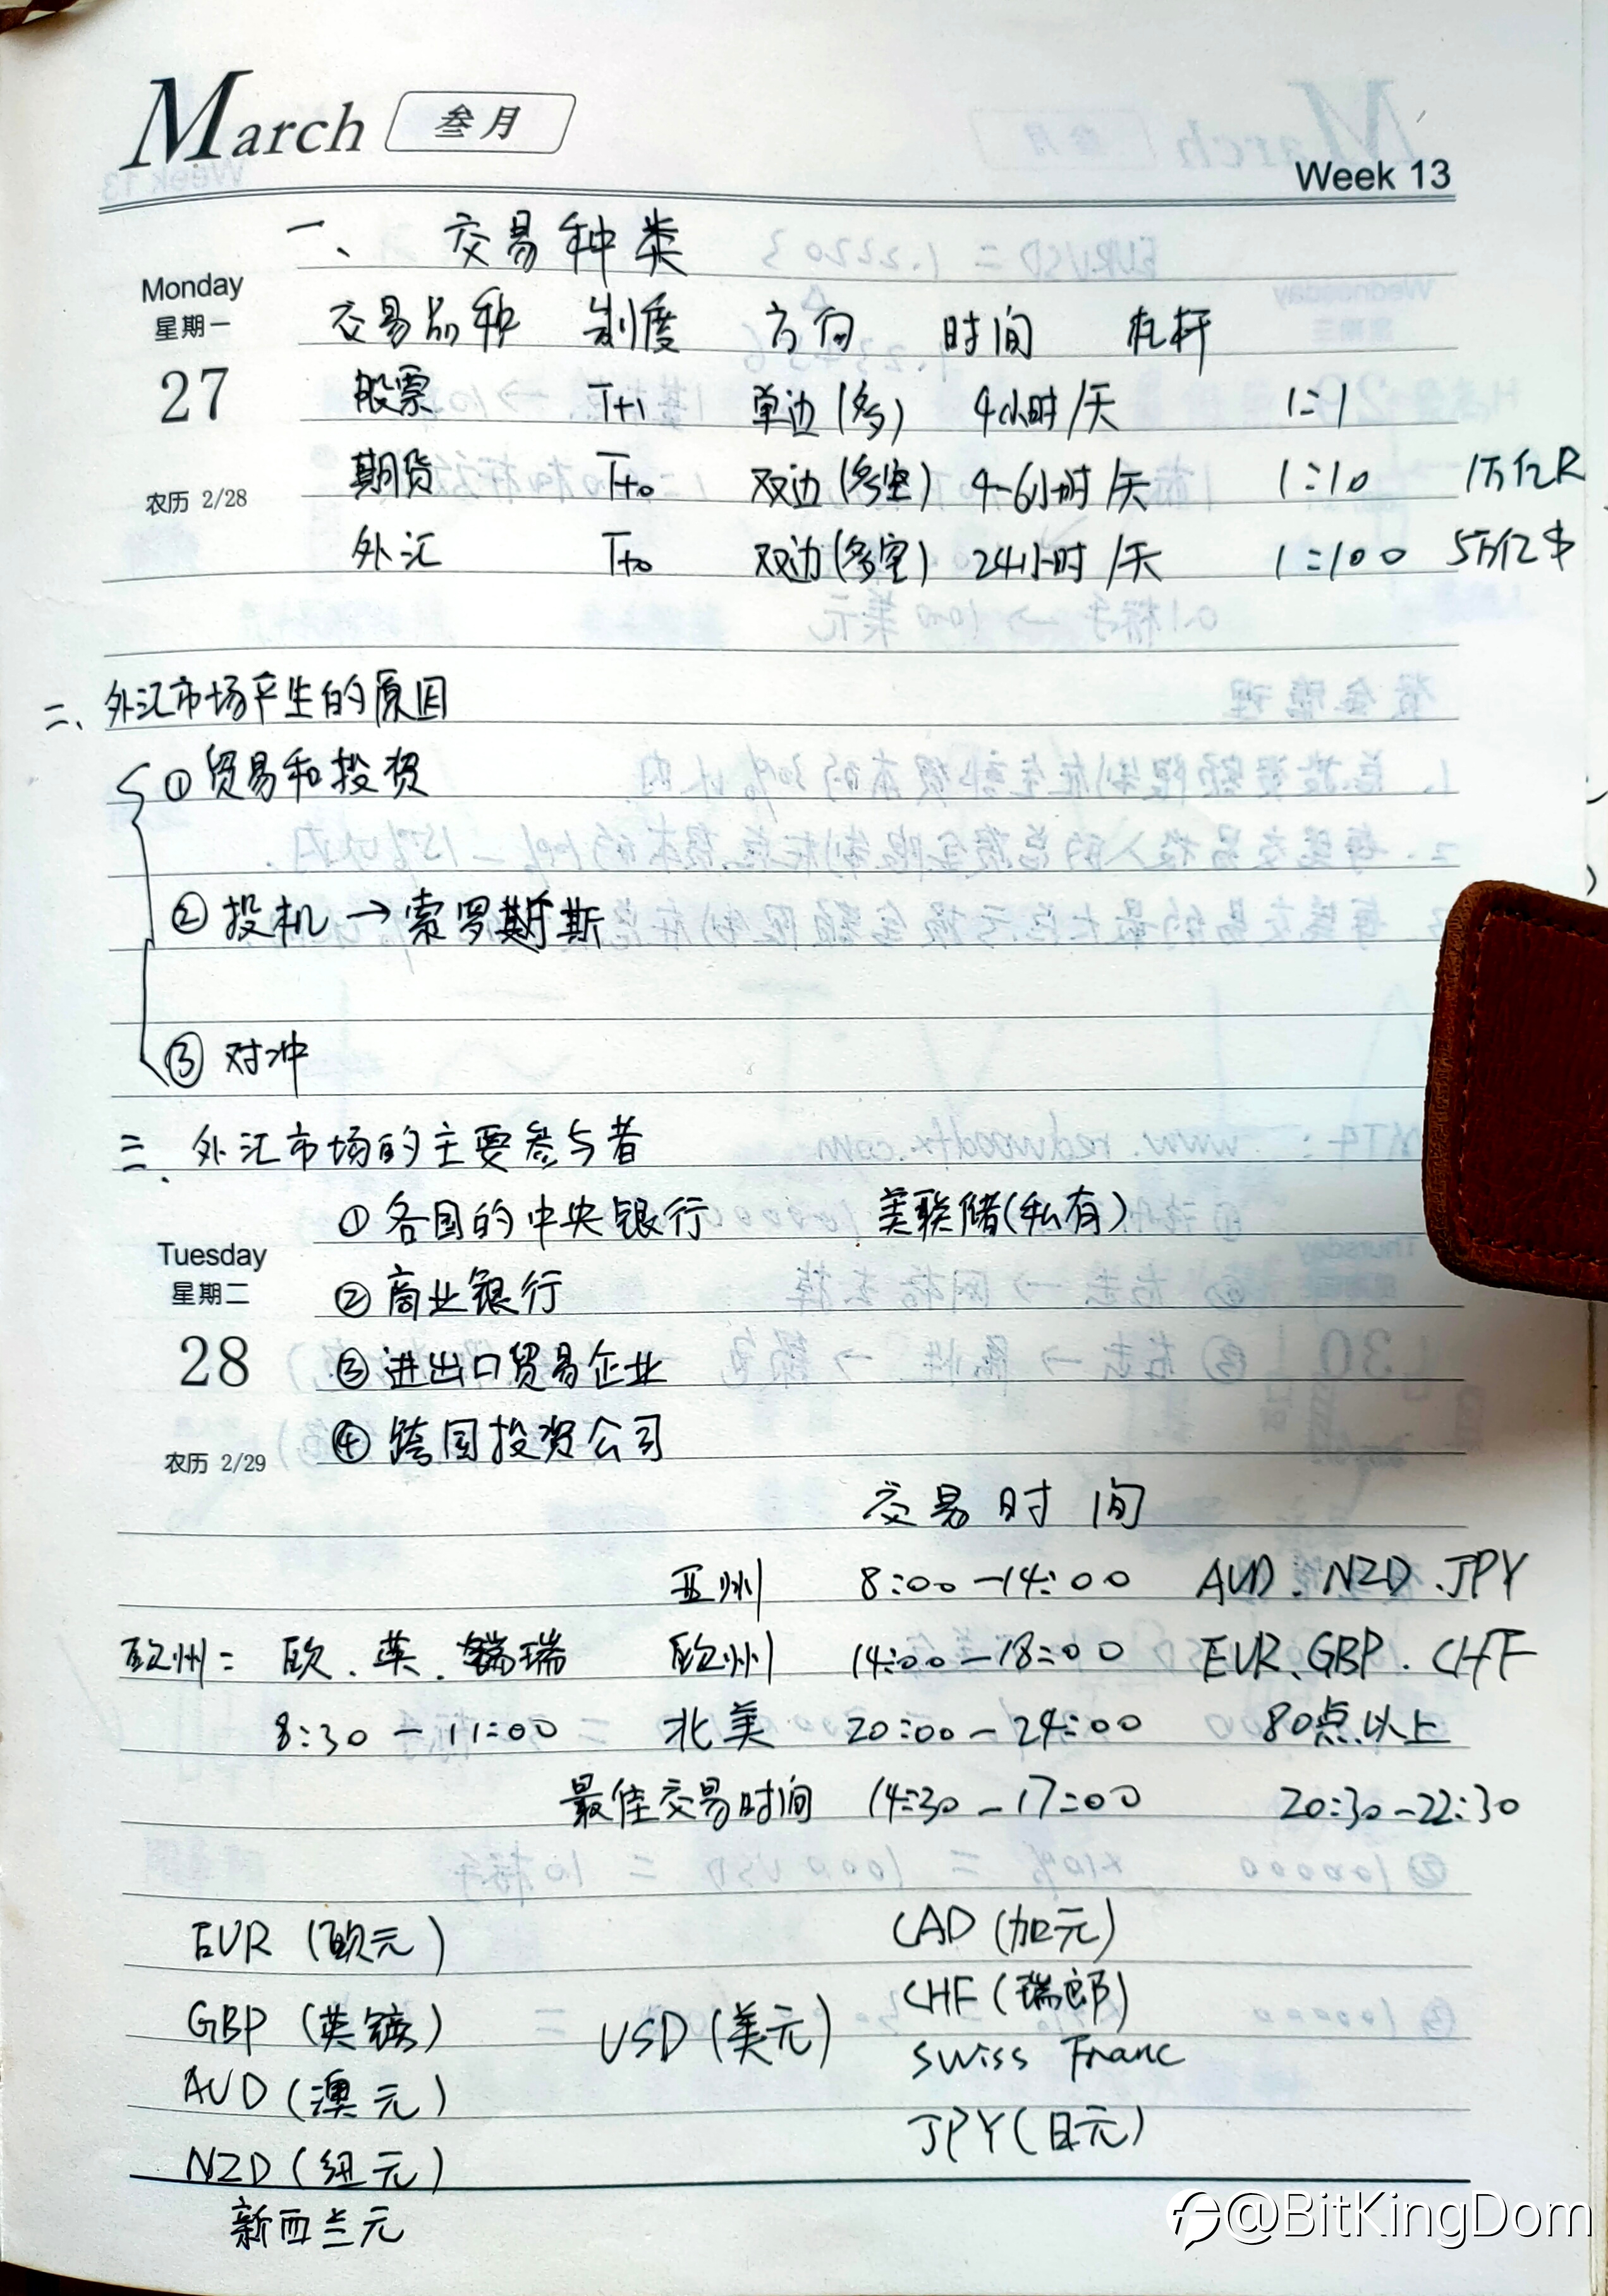 March 叁月
Week 13
一、 交易种类
Monday
星期一
27
农历 2/28
交易品种 制度 方向 时间 杠杆
股票 T+1 单边(多) 4小时/天 1:1
期货 T+0 双边(多空) 4-6小时/天 1:10 1万亿R
外汇 T+0 双边(多空) 24小时/天 1:100 5万亿$
二、外汇市场产生的原因
①贸易和投资
②投机→索罗斯
③对冲
三、外汇市场的主要参与者
Tuesday
星期二
28
农历 2/29
①各国的中央银行 美联储(私有)
②商业银行
③进出口贸易企业
④跨国投资公司
交易时间
亚洲 8:00-14:00 AUD、NZD、JPY
欧洲: 欧.英.瑞 欧洲 14:00-18:00 EUR、GBP.CHF
8:30-11:00 北美 20:00-24:00 80点以上
最佳交易时间 14:30-17:00 20:30-22:30
EUR(欧元)
GBP(英镑)
AUD(澳元)
NZD(纽元)
新西兰元
USD(美元)
CAD(加元)
CHF(瑞郎)
Swiss Franc
JPY(日元)
@BitKingDom